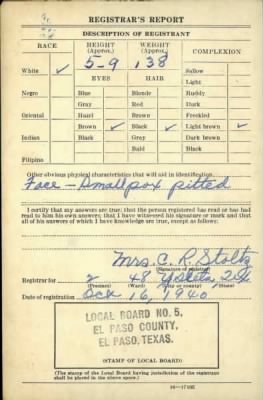 REGISTRAR'S REPORT
DESCRIPTION OF REGISTRANT
RACE HEIGHT (Approx.) WEIGHT (Approx.) COMPLEXION
5-9 138
White ✓ Sallow
EYES HAIR Light
Negro Blue Blonde Ruddy
Gray Red Dark
Oriental Hazel Brown Freckled
Brown ✓ Black ✓ Light brown ✓
Indian Black Gray Dark brown
Bald Black
Filipino
Other obvious physical characteristics that will aid in identification
Face - Smallpox pitted
I certify that my answers are true; that the person registered has read or has had
read to him his own answers; that I have witnessed his signature or mark and that
all of his answers of which I have knowledge are true, except as follows:
Mrs. C. R. Stoltz
(Signature of registrar)
Registrar for 2 48 Ysleta
(Precinct) (Ward) (City or county) (State)
Date of registration Oct 16, 1940
LOCAL BOARD NO. 5,
EL PASO COUNTY,
EL PASO, TEXAS.
(STAMP OF LOCAL BOARD)
(The stamp of the Local Board having jurisdiction of the registrant
shall be placed in the above space.)
16-17105